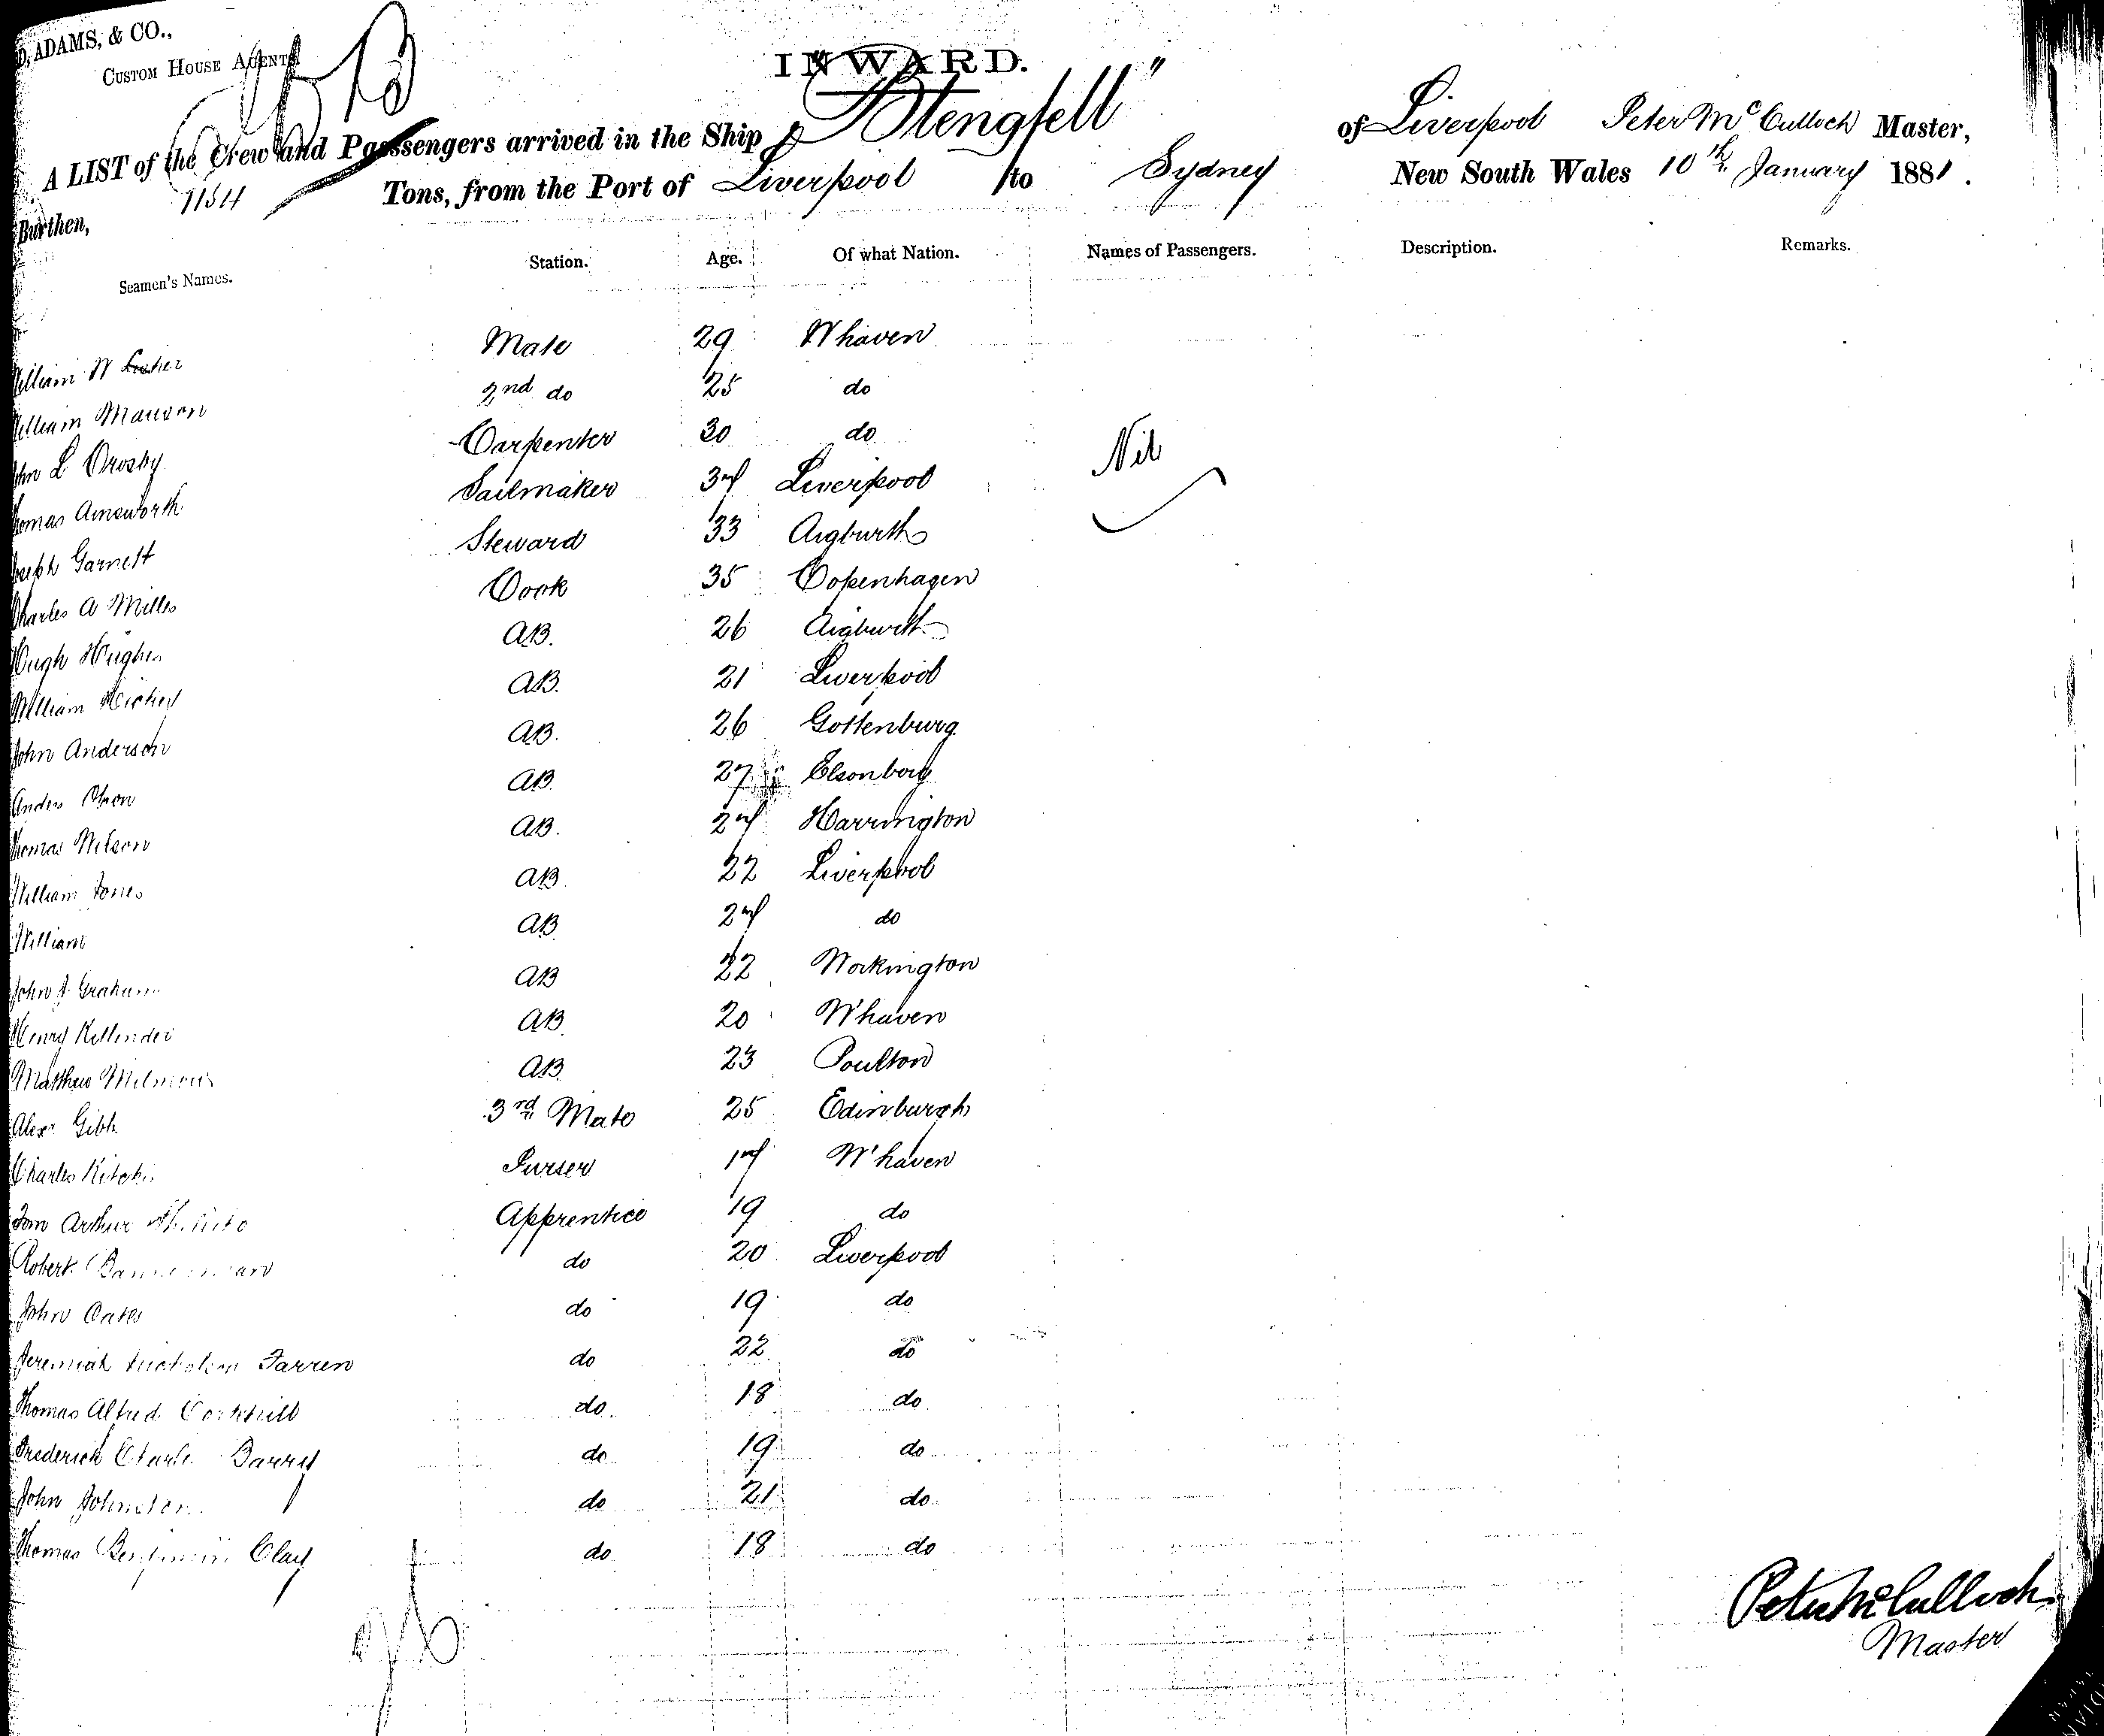 D, ADAMS, & CO.,
CUSTOM HOUSE AGENTS
INWARD.
A LIST of the Crew and Passsengers arrived in the Ship "Stengfell" of Liverpool Peter McCulloch Master,
Burthen, 1154 Tons, from the Port of Liverpool to Sydney New South Wales 10th January 1881.
Seamen's Names. Station. Age. Of what Nation. Names of Passengers. Description. Remarks.
William W Mate 29 Whaven
William Manson 2nd do 25 do
John L Crosby Carpenter 30 do
Nil
Thomas Ainsworth Sailmaker 34 Liverpool
Joseph Garnett Steward 33 Aigburth
Charles A Milles Cook 35 Copenhagen
Hugh Hughes AB. 26 Aigburth
William Hickey AB. 21 Liverpool
John Anderson AB. 26 Gottenburg
Anders Olson AB. 27 Elsonborg
Thomas Wilson AB. 24 Harrington
William Jones AB. 22 Liverpool
William AB 24 do
John J Graham AB 22 Workington
Henry AB. 20 W'haven
Matthew AB. 23 Poulton
Alexr Gibb 3rd Mate 25 Edinburgh
Charles Purser 14 W'haven
Tom Arthur Apprentice 19 do
Robert do 20 Liverpool
John Oates do 19 do
Jeremiah Nicholson Farren do 22 do
Thomas Alfred Corkhill do 18 do
Frederick Charles Barry do 19 do
John Johnston do 21 do
Thomas Benjamin Clay do 18 do
Peter McCulloch
Master